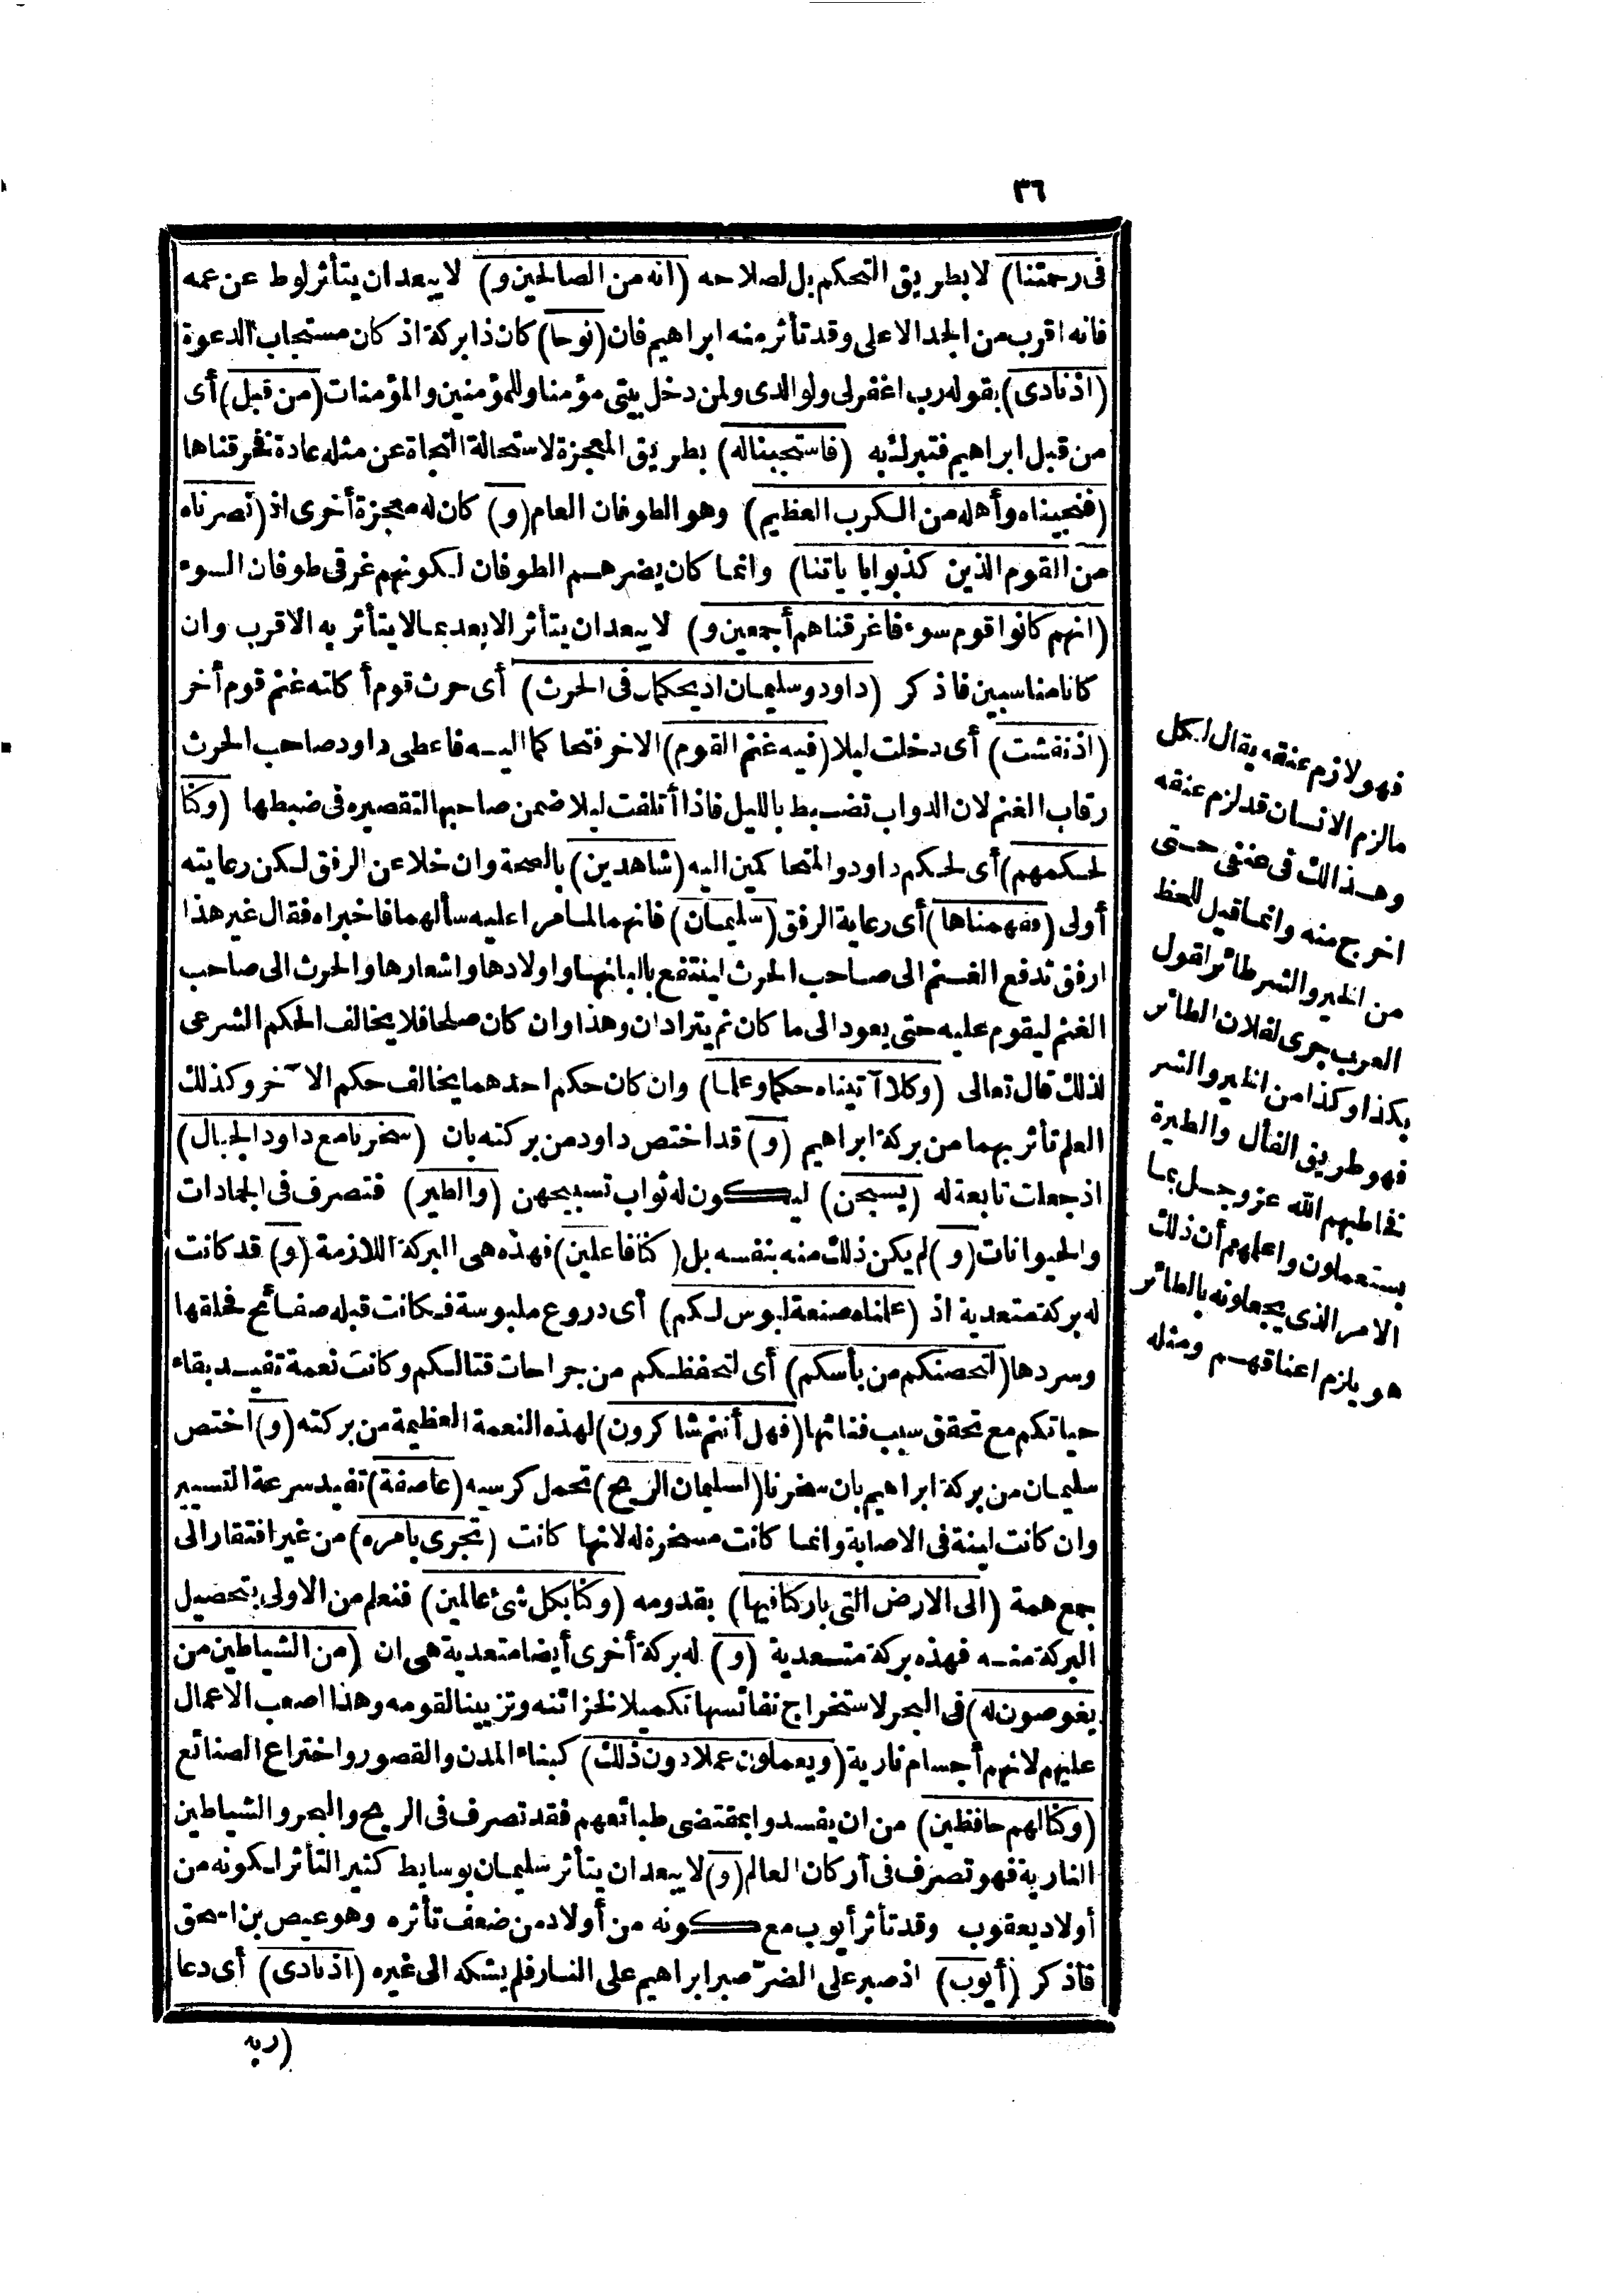 ٣٦
فى رحمتنا) لا بطريق التحكم بل لصلاحه (انه من الصالحين و) لا يبعد ان يتأثر لوط عن عمه
فانه اقرب من الجد الاعلى وقد تأثر منه ابراهيم فان (نوحا) كان ذا بركة اذ كان مستجاب الدعوة
(اذ نادى) بقوله رب اغفر لى ولوالدى ولمن دخل بيتى مؤمنا وللمؤمنين والمؤمنات (من قبل) أى
من قبل ابراهيم فتبرك به (فاستجبنا له) بطريق المعجزة لاستحالة النجاة عن مثله عادة فخرقناها
(فنجيناه وأهله من الكرب العظيم) وهو الطوفان العام (و) كان له معجزة أخرى اذ (نصرناه
من القوم الذين كذبوا باياتنا) وانما كان يضرهم الطوفان لكونهم غرقى طوفان السوء
(انهم كانوا قوم سوء فاغرقناهم أجمعين و) لا يبعد ان يتأثر الابعد بما لا يتأثر به الاقرب وان
كانا مناسبين فاذكر (داود وسليمان اذ يحكمان فى الحرث) أى حرث قوم أكلته غنم قوم أخر
(اذ نفشت) أى دخلت ليلا (فيه غنم القوم) الاخر فتحاكما اليه فاعطى داود صاحب الحرث
رقاب الغنم لان الدواب تضبط بالليل فاذا أتلفت ليلا ضمن صاحبها لتقصيره فى ضبطها (وكنا
لحكمهم) أى لحكم داود والمتحاكمين اليه (شاهدين) بالصحة وان خلا عن الرفق لكن رعايته
أولى (ففهمناها) أى رعاية الرفق (سليمان) فانهما لما مرا عليه سألهما فاخبراه فقال غير هذا
ارفق تدفع الغنم الى صاحب الحرث لينتفع بالبانها واولادها واشعارها والحرث الى صاحب
الغنم ليقوم عليه حتى يعود الى ما كان ثم يترادان وهذا وان كان صلحا فلا يخالف الحكم الشرعى
لذلك قال تعالى (وكلا آتيناه حكما وعلما) وان كان حكم احدهما يخالف حكم الآخر وكذلك
العلم تأثر بهما من بركة ابراهيم (و) قد اختص داود من بركته بان (سخرنا مع داود الجبال)
اذ جعلت تابعة له (يسبحن) ليكون له ثواب تسبيحهن (والطير) فتصرف فى الجمادات
والحيوانات (و) لم يكن ذلك منه بنفسه بل (كنا فاعلين) فهذه هى البركة اللازمة (و) قد كانت
له بركة متعدية اذ (علمناه صنعة لبوس لكم) أى دروع ملبوسة فكانت قبله صفائح فحلقها
وسردها (لتحصنكم من بأسكم) أى لتحفظكم من جراحات قتالكم وكانت نعمة تفيد بقاء
حياتكم مع تحقق سبب فنائها (فهل أنتم شاكرون) لهذه النعمة العظيمة من بركته (و) اختص
سليمان من بركة ابراهيم بان سخرنا (لسليمان الريح) تحمل كرسيه (عاصفة) تفيد سرعة التسيير
وان كانت لينة فى الاصابة وانما كانت مسخرة له لانها كانت (تجرى بامره) من غير افتقار الى
جمع همة (الى الارض التى باركنا فيها) بقدومه (وكنا بكل شئ عالمين) فنعلم من الاولى بتحصيل
البركة منه فهذه بركة متعدية (و) له بركة أخرى أيضا متعدية هى ان (من الشياطين من
يغوصون له) فى البحر لاستخراج نفائسها تكميلا لخزائنه وتزيينا لقومه وهذا اصعب الاعمال
عليهم لانهم أجسام نارية (ويعملون عملا دون ذلك) كبناء المدن والقصور واختراع الصنائع
(وكنا لهم حافظين) من ان يفسدوا بمقتضى طبائعهم فقد تصرف فى الريح والبحر والشياطين
النارية فهو تصرف فى أركان العالم (و) لا يبعد ان يتأثر سليمان بوسايط كثير التأثر لكونه من
أولاد يعقوب وقد تأثر أيوب مع كونه من أولاد من ضعف تأثره وهو عيص بن اسحق
فأذكر (أيوب) اذ صبر على الضرّ صبر ابراهيم على النار فلم يشكه الى غيره (اذ نادى) أى دعا
(ربه
فهو لازم عنقه يقال لكل
ما لزم الانسان قد لزم عنقه
وهذا لك فى عنقى حتى
اخرج منه وانما قيل للحظ
من الخير والشر طائر لقول
العرب جرى لفلان الطائر
بكذا وكذا من الخير والشر
فهو طريق الفأل والطيرة
فخاطبهم الله عز وجل بما
يستعملون واعلمهم أن ذلك
الامر الذى يجعلونه بالطائر
هو يلزم اعناقهم ومثله